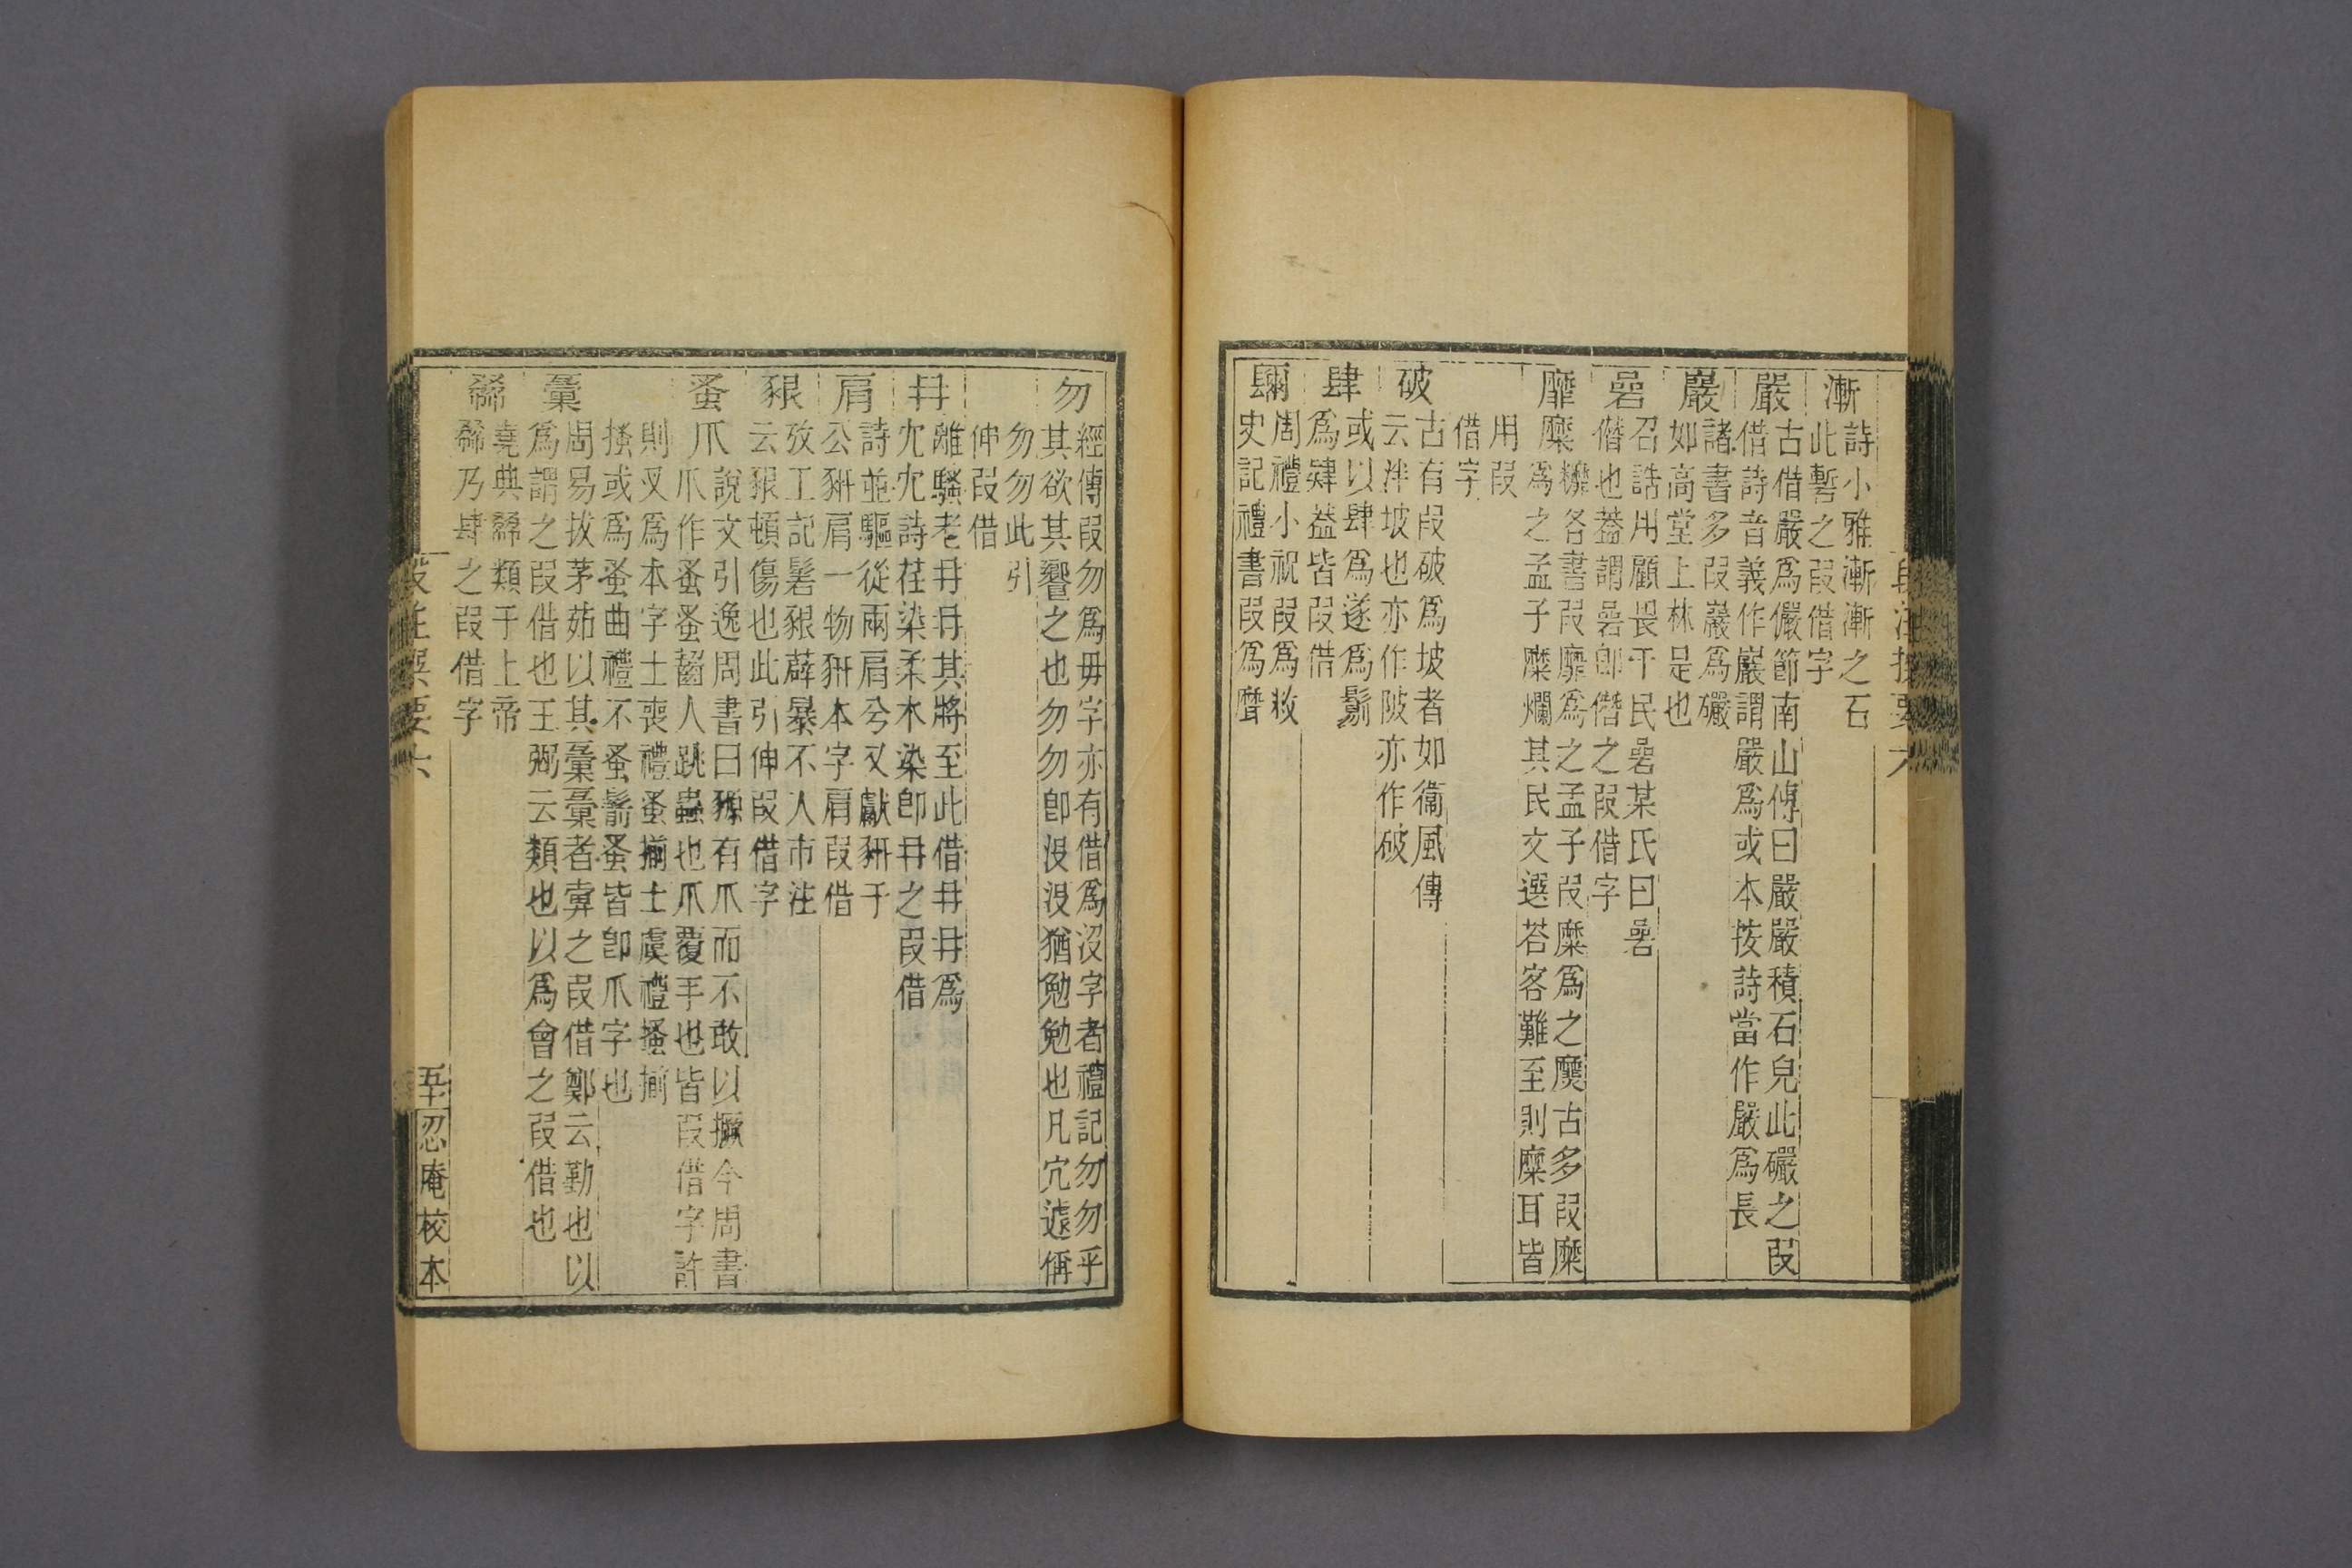 漸
詩小雅漸漸之石
此䡖之叚借字
嚴
古借嚴爲儼節南山傳曰嚴嚴積石皃此礹之叚
借詩音義作巖謂嚴爲或本按詩當作嚴爲長
巖
諸書多叚巖爲礹
如高堂上林是也
嵒
召誥用顧畏于民嵒某氏曰嵒
僭也葢謂嵒卽僭之叚借字
靡
糜 䊳各書叚靡爲之孟子叚糜爲之糜古多叚糜
爲之孟子糜爛其民文選荅客難至則糜耳皆
用叚
借字
破
古有叚破爲坡者如衞風傳
云泮坡也亦作陂亦作破
肆
或以肆爲遂爲鬄
爲肄葢皆叚借
镾
周禮小祝叚爲敉
史記禮書叚爲靡
勿
經傳叚勿爲毋字亦有借爲沒字者禮記勿勿乎
其欲其響之也勿勿卽沒沒猶勉勉也凡宂遽稱
勿勿此引
伸叚借
冄
離騷老冄冄其將至此借冄冄爲
冘冘詩荏染柔木染卽冄之叚借
肩
詩並驅從兩肩兮又獻豜于
公豜肩一物豜本字肩叚借
豤
攷工記髺豤薜暴不入市注
云豤頓傷也此引伸叚借字
蚤
爪 說文引逸周書曰豲有爪而不敢以撅今周書
爪作蚤蚤齧人跳蟲也爪覆手也皆叚借字許
則叉爲本字士喪禮蚤揃士虞禮搔揃
搔或爲蚤曲禮不蚤鬋蚤皆卽爪字也
彙
周易拔茅茹以其彙彙者䯣之叚借鄭云勤也以
爲謂之叚借也王弼云類也以爲會之叚借也
𥹆
堯典𥹆類于上帝
𥹆乃肆之叚借字
段注撰要六
五千忍庵校本